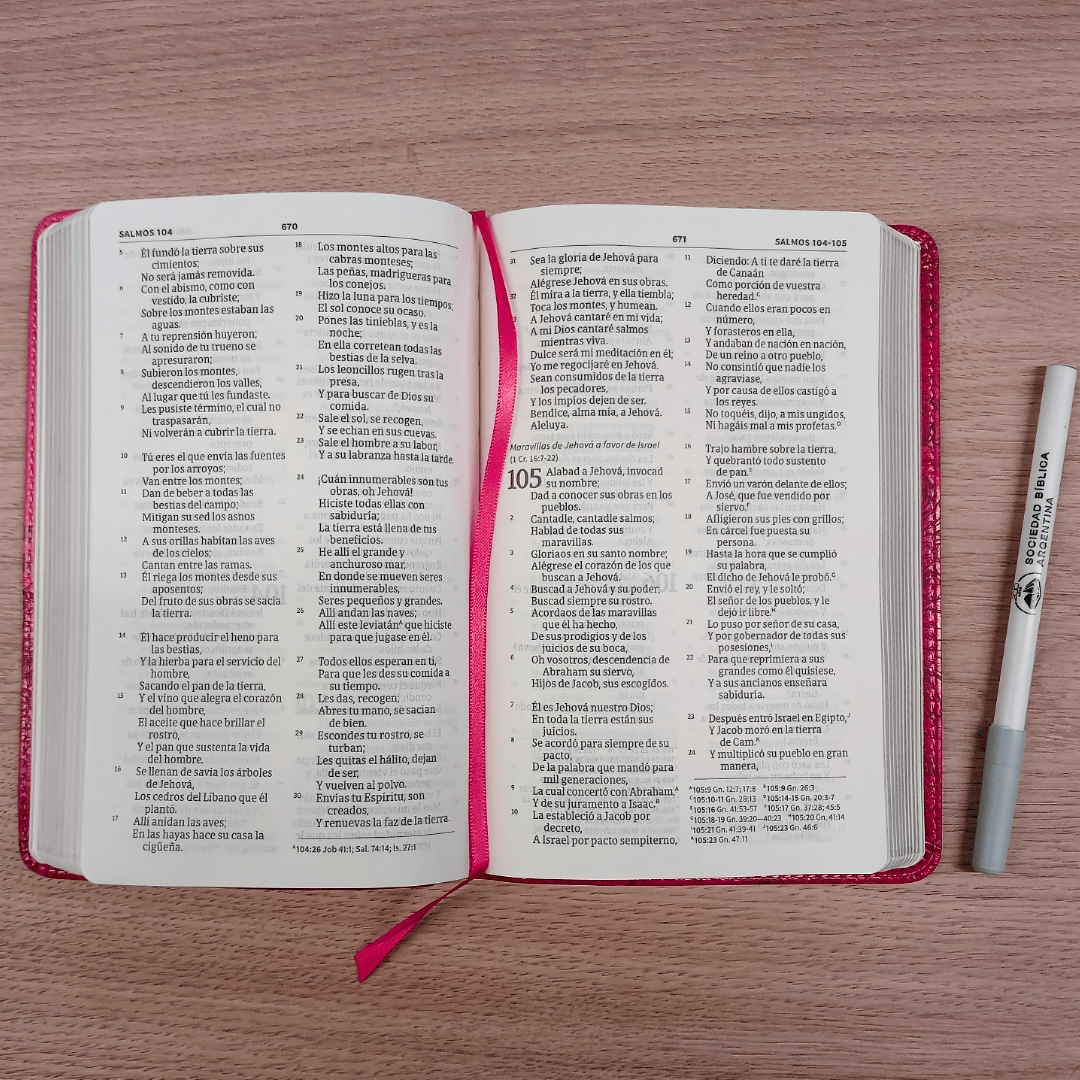 SALMOS 104
670
5 Él fundó la tierra sobre sus
cimientos;
No será jamás removida.
6 Con el abismo, como con
vestido, la cubriste;
Sobre los montes estaban las
aguas.
7 A tu reprensión huyeron;
Al sonido de tu trueno se
apresuraron;
8 Subieron los montes,
descendieron los valles,
Al lugar que tú les fundaste.
9 Les pusiste término, el cual no
traspasarán,
Ni volverán a cubrir la tierra.
10 Tú eres el que envía las fuentes
por los arroyos;
Van entre los montes;
11 Dan de beber a todas las
bestias del campo;
Mitigan su sed los asnos
monteses.
12 A sus orillas habitan las aves
de los cielos;
Cantan entre las ramas.
13 Él riega los montes desde sus
aposentos;
Del fruto de sus obras se sacia
la tierra.
14 Él hace producir el heno para
las bestias,
Y la hierba para el servicio del
hombre,
Sacando el pan de la tierra,
15 Y el vino que alegra el corazón
del hombre,
El aceite que hace brillar el
rostro,
Y el pan que sustenta la vida
del hombre.
16 Se llenan de savia los árboles
de Jehová,
Los cedros del Líbano que él
plantó.
17 Allí anidan las aves;
En las hayas hace su casa la
cigüeña.
18 Los montes altos para las
cabras monteses;
Las peñas, madrigueras para
los conejos.
19 Hizo la luna para los tiempos;
El sol conoce su ocaso.
20 Pones las tinieblas, y es la
noche;
En ella corretean todas las
bestias de la selva.
21 Los leoncillos rugen tras la
presa,
Y para buscar de Dios su
comida.
22 Sale el sol, se recogen,
Y se echan en sus cuevas.
23 Sale el hombre a su labor,
Y a su labranza hasta la tarde.
24 ¡Cuán innumerables son tus
obras, oh Jehová!
Hiciste todas ellas con
sabiduría;
La tierra está llena de tus
beneficios.
25 He allí el grande y
anchuroso mar,
En donde se mueven seres
innumerables,
Seres pequeños y grandes.
26 Allí andan las naves;
Allí este leviatánᴬ que hiciste
para que jugase en él.
27 Todos ellos esperan en ti,
Para que les des su comida a
su tiempo.
28 Les das, recogen;
Abres tu mano, se sacian
de bien.
29 Escondes tu rostro, se
turban;
Les quitas el hálito, dejan
de ser,
Y vuelven al polvo.
30 Envías tu Espíritu, son
creados,
Y renuevas la faz de la tierra.
ᴬ104:26 Job 41:1; Sal. 74:14; Is. 27:1
671
SALMOS 104-105
31 Sea la gloria de Jehová para
siempre;
Alégrese Jehová en sus obras.
32 Él mira a la tierra, y ella tiembla;
Toca los montes, y humean.
3 A Jehová cantaré en mi vida;
A mi Dios cantaré salmos
mientras viva.
Dulce será mi meditación en él;
Yo me regocijaré en Jehová.
Sean consumidos de la tierra
los pecadores,
Y los impíos dejen de ser.
Bendice, alma mía, a Jehová.
Aleluya.
Maravillas de Jehová a favor de Israel
(1 Cr. 16:7-22)
105 Alabad a Jehová, invocad
su nombre;
Dad a conocer sus obras en los
pueblos.
2 Cantadle, cantadle salmos;
Hablad de todas sus
maravillas.
3 Gloriaos en su santo nombre;
Alégrese el corazón de los que
buscan a Jehová.
4 Buscad a Jehová y su poder;
Buscad siempre su rostro.
5 Acordaos de las maravillas
que él ha hecho,
De sus prodigios y de los
juicios de su boca,
6 Oh vosotros, descendencia de
Abraham su siervo,
Hijos de Jacob, sus escogidos.
7 Él es Jehová nuestro Dios;
En toda la tierra están sus
juicios.
8 Se acordó para siempre de su
pacto;
De la palabra que mandó para
mil generaciones,
9 La cual concertó con Abraham,ᴬ
Y de su juramento a Isaac.ᴮ
10 La estableció a Jacob por
decreto,
A Israel por pacto sempiterno,
11 Diciendo: A ti te daré la tierra
de Canaán
Como porción de vuestra
heredad.ᶜ
12 Cuando ellos eran pocos en
número,
Y forasteros en ella,
13 Y andaban de nación en nación,
De un reino a otro pueblo,
14 No consintió que nadie los
agraviase,
Y por causa de ellos castigó a
los reyes.
15 No toquéis, dijo, a mis ungidos,
Ni hagáis mal a mis profetas.ᴰ
16 Trajo hambre sobre la tierra,
Y quebrantó todo sustento
de pan.ᴱ
17 Envió un varón delante de ellos;
A José, que fue vendido por
siervo.ᶠ
18 Afligieron sus pies con grillos;
En cárcel fue puesta su
persona.
19 Hasta la hora que se cumplió
su palabra,
El dicho de Jehová le probó.ᴳ
20 Envió el rey, y le soltó;
El señor de los pueblos, y le
dejó ir libre.ᴴ
21 Lo puso por señor de su casa,
Y por gobernador de todas sus
posesiones,ᴵ
22 Para que reprimiera a sus
grandes como él quisiese,
Y a sus ancianos enseñara
sabiduría.
23 Después entró Israel en Egipto,ᴶ
Y Jacob moró en la tierra
de Cam.ᴷ
24 Y multiplicó su pueblo en gran
manera,
ᴬ105:9 Gn. 12:7; 17:8 ᴮ105:9 Gn. 26:3
ᶜ105:10-11 Gn. 28:13 ᴰ105:14-15 Gn. 20:3-7
ᴱ105:16 Gn. 41:53-57 ᶠ105:17 Gn. 37:28; 45:5
ᴳ105:18-19 Gn. 39:20—40:23 ᴴ105:20 Gn. 41:14
ᴵ105:21 Gn. 41:39-41 ᴶ105:23 Gn. 46:6
ᴷ105:23 Gn. 47:11
SOCIEDAD BÍBLICA
ARGENTINA